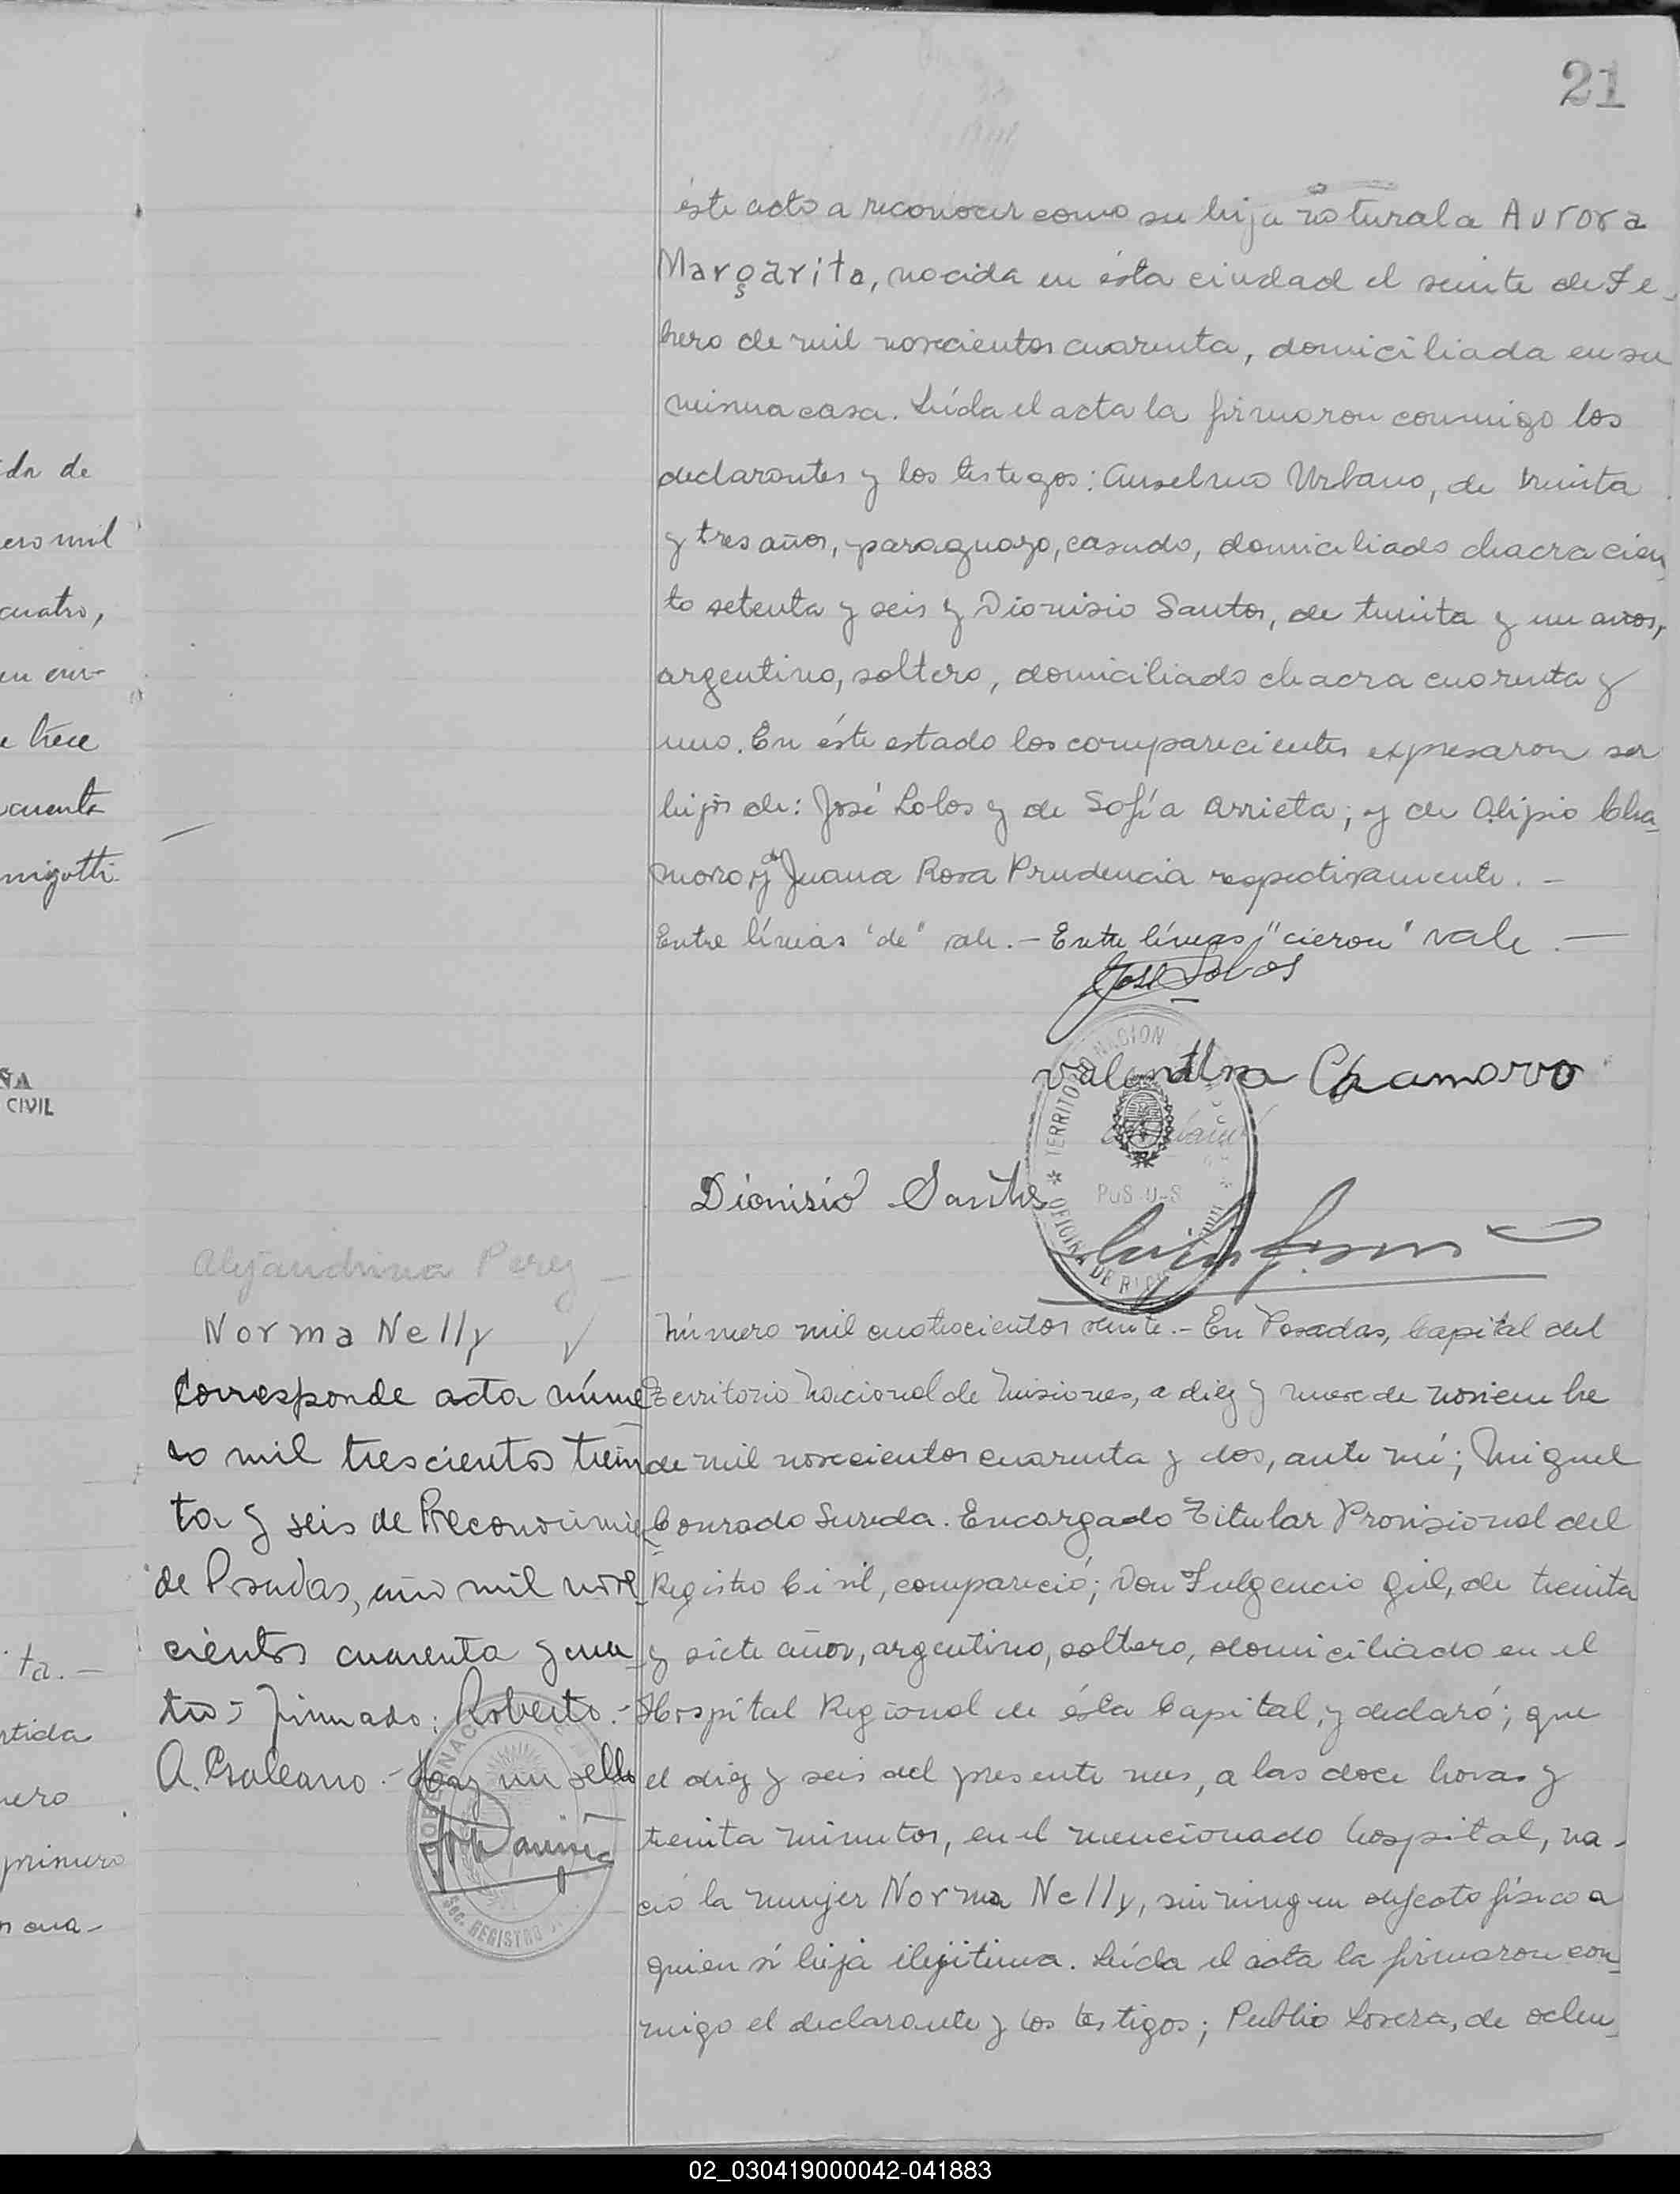 21
éste acto a reconocer como su hija natural a Aurora
Margarita, nacida en ésta ciudad el veinte de Fe-
brero de mil novecientos cuarenta, domiciliada en su
misma casa. Leída el acta la firmaron conmigo los
declarantes y los testigos: Anselmo Urbano, de treinta
y tres años, paraguayo, casado, domiciliado chacra cien
to setenta y seis y Dionisio Santos, de treinta y un años,
argentino, soltero, domiciliado chacra cuarenta y
uno. En éste estado los comparecientes expresaron ser
hijos de: José Lobos y de Sofía Arrieta; y de Alipio Cha-
morro y de Juana Rosa Prudencia respectivamente. -
Entre líneas "de" vale. - Entre líneas "cieron" vale. -
José Lobos
Valentina Chamorro
Dionisio Santos
TERRITORIO NACION
OFICINA DE
Alejandrina Perez -
Norma Nelly
Corresponde acta núme
ro mil trescientos trein
ta y seis de Reconocimie
de Posadas, año mil nove
cientos cuarenta y cua
tro - firmado: Roberto -
A. Galeano - Hay un sello
SEC. REGISTRO
Número mil cuatrocientos veinte. - En Posadas, Capital del
Territorio Nacional de Misiones, a diez y nueve de noviembre
de mil novecientos cuarenta y dos, ante mí; Miguel
Conrado Sureda. Encargado Titular Provisional del
Registro Civil, compareció; Don Fulgencio Gil, de treinta
y siete años, argentino, soltero, domiciliado en el
Hospital Regional de ésta Capital, y declaró; que
el diez y seis del presente mes, a las doce horas y
treinta minutos, en el mencionado hospital, na-
ció la mujer Norma Nelly, sin ningun defecto físico a
quien vi hija ilejitima. Leída el acta la firmaron con
migo el declarante y los testigos; Publio Lovera, de ochen
da de
ero mil
cuatro,
en ciu-
e trece
cuenta
migotti
ÑA
CIVIL
ta. -
rtida
nero
primero
n cua-
02_030419000042-041883